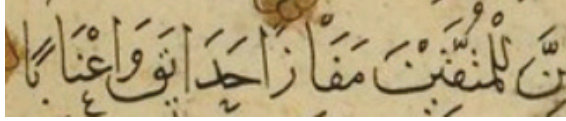 نَّ لِلْمُتَّقِيْنَ مَفَازًا حَدَايِٕقَ وَاَعْنَابًا